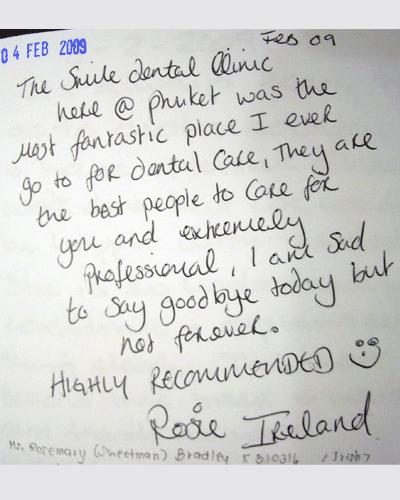 Feb 09
04 FEB 2009
The Smile dental Clinic
here @ phuket was the
most fantastic place I ever
go to for dental Care, They are
the best people to care for
you and extremely
professional, I am sad
to say goodbye today but
not forever.
HIGHLY RECOMMENDED
Rosie Ireland
Ms. Rosemary (Sheetman) Bradley 5310316 (Irish)